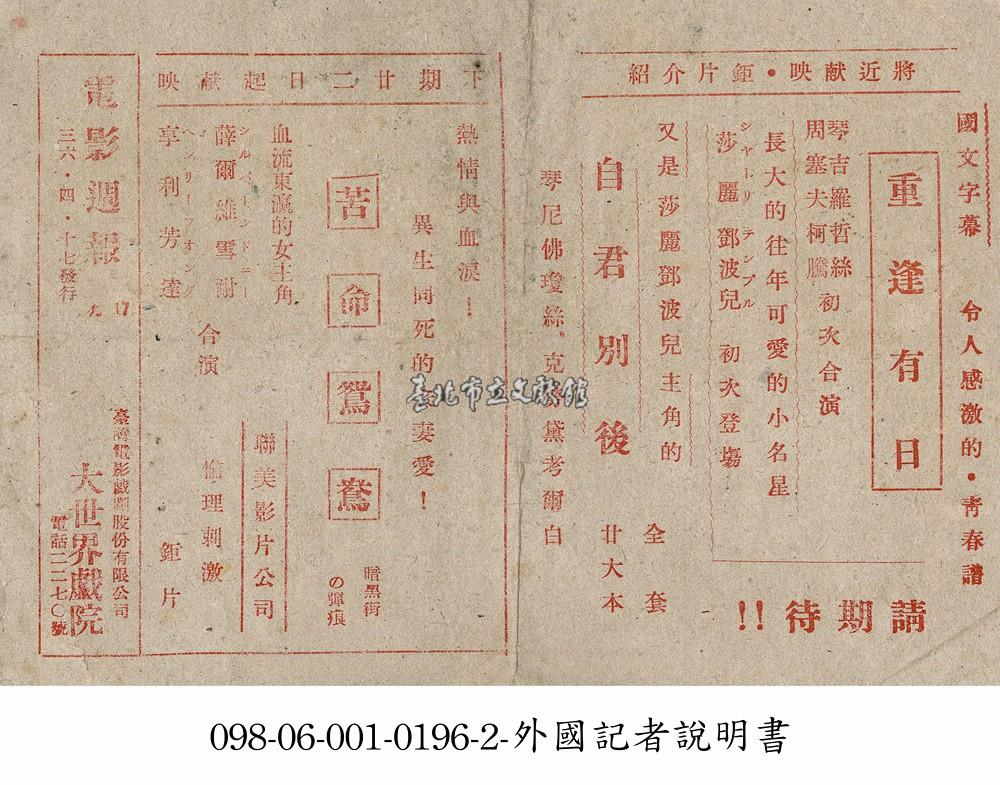 將近献映・鉅片介紹
國文字幕　令人感激的・青春譜
重逢有日
琴吉羅哲絲
周塞夫柯騰
初次合演
長大的往年可愛的小名星
シャーリ テンプル
莎麗鄧波兒　初次登場
又是莎麗鄧波兒主角的
自君別後
全套
廿大本
琴尼佛瓊絲、克 黛考爾白
請期待!!
下期廿二日起献映
熱情與血淚！
異生同死的 妻愛！
苦命鴛鴦
暗黑街
の彈痕
血流東瀛的女主角
シルバーシドニー
薛爾維雪耐
ヘンリーフオンダ
享利芳達
合演
聯美影片公司
倫理刺激
鉅片
電影週報
17
三六・四・十七發行
臺灣電影戲劇股份有限公司
大世界戲院
電話二二七〇號
臺北市立文獻館
098-06-001-0196-2-外國記者說明書